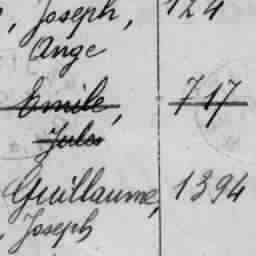 , Joseph, 124
Ange
Emile, 717
Jules
Guillaume, 1394
, Joseph